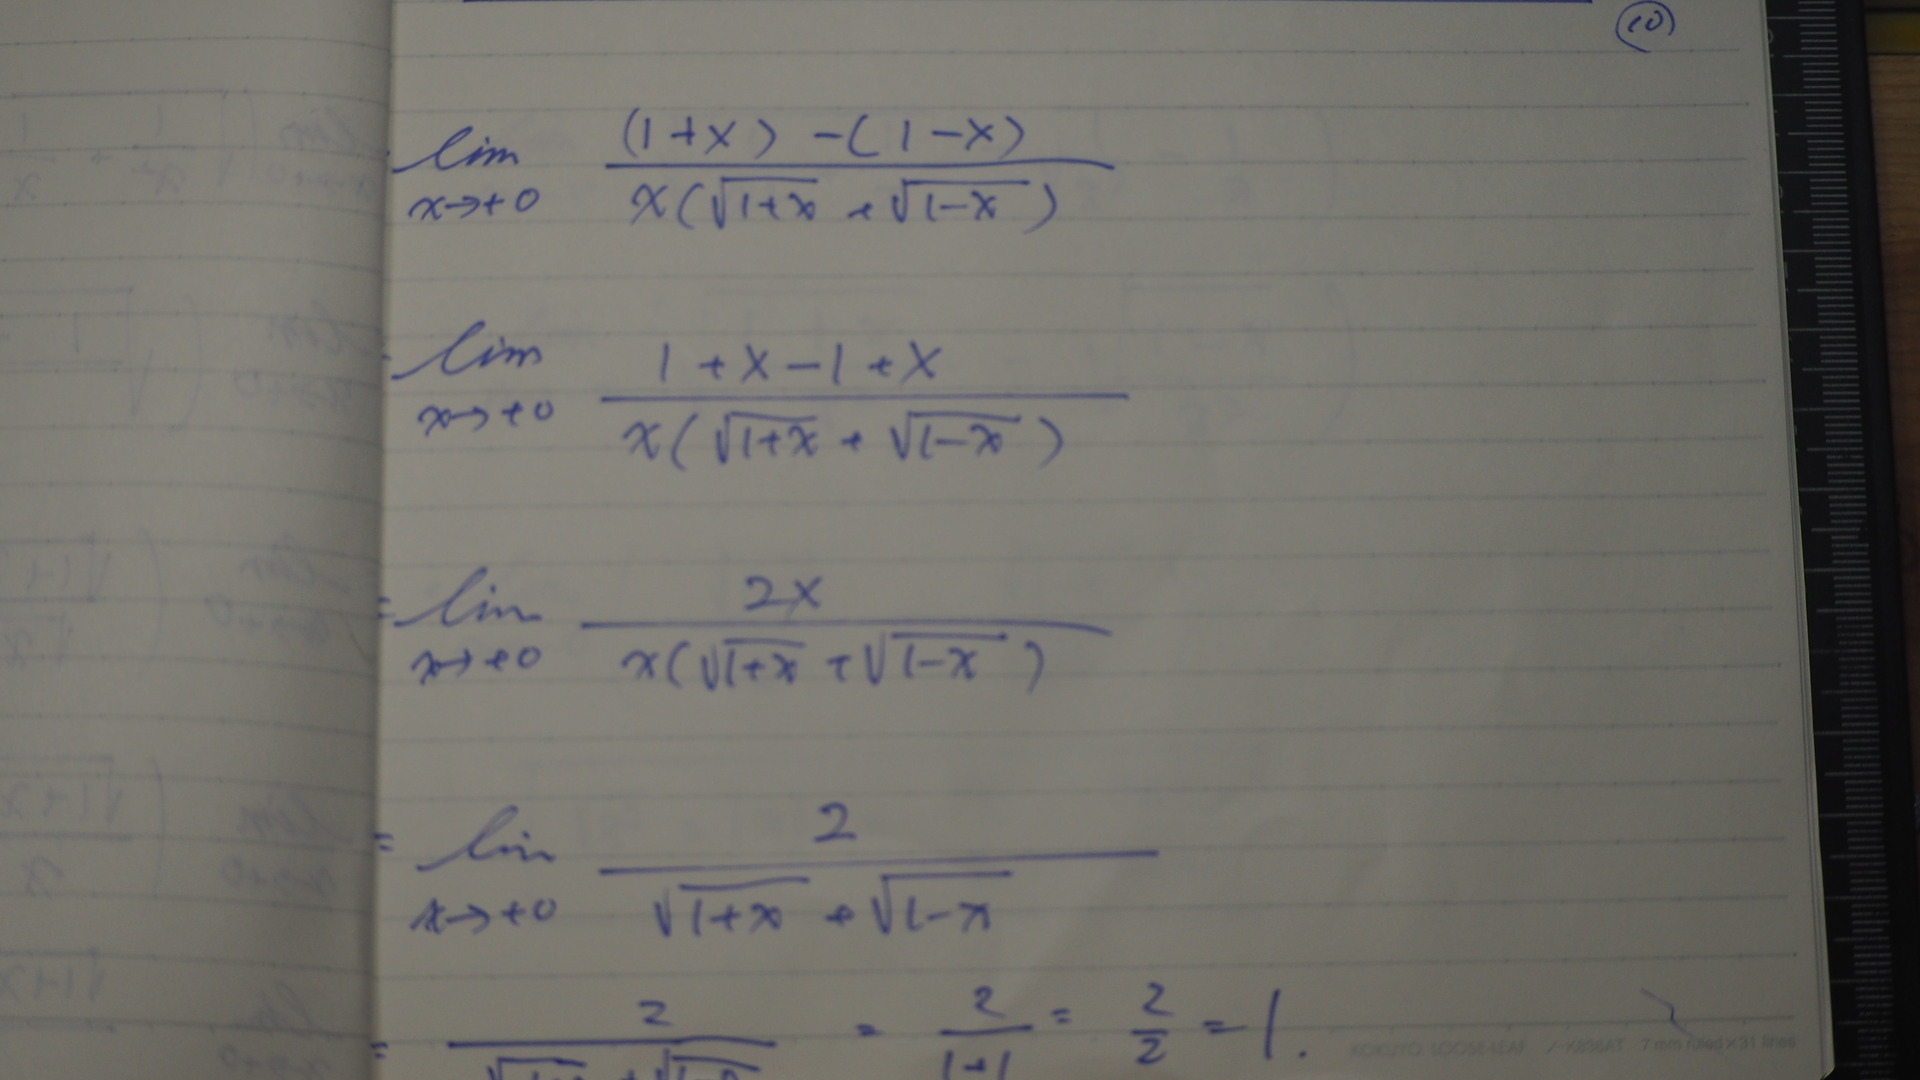 (10)
lim x→+0 ((1+x) -(1-x)) / (x(√(1+x) + √(1-x)))
= lim x→+0 (1+x-1+x) / (x(√(1+x) + √(1-x)))
= lim x→+0 2x / (x(√(1+x) + √(1-x)))
= lim x→+0 2 / (√(1+x) + √(1-x))
= 2 / (√(1+0) + √(1-0)) = 2 / (1+1) = 2/2 = 1.
KOKUYO LOOSE-LEAF ノ-X836AT 7 mm ruled×31 lines